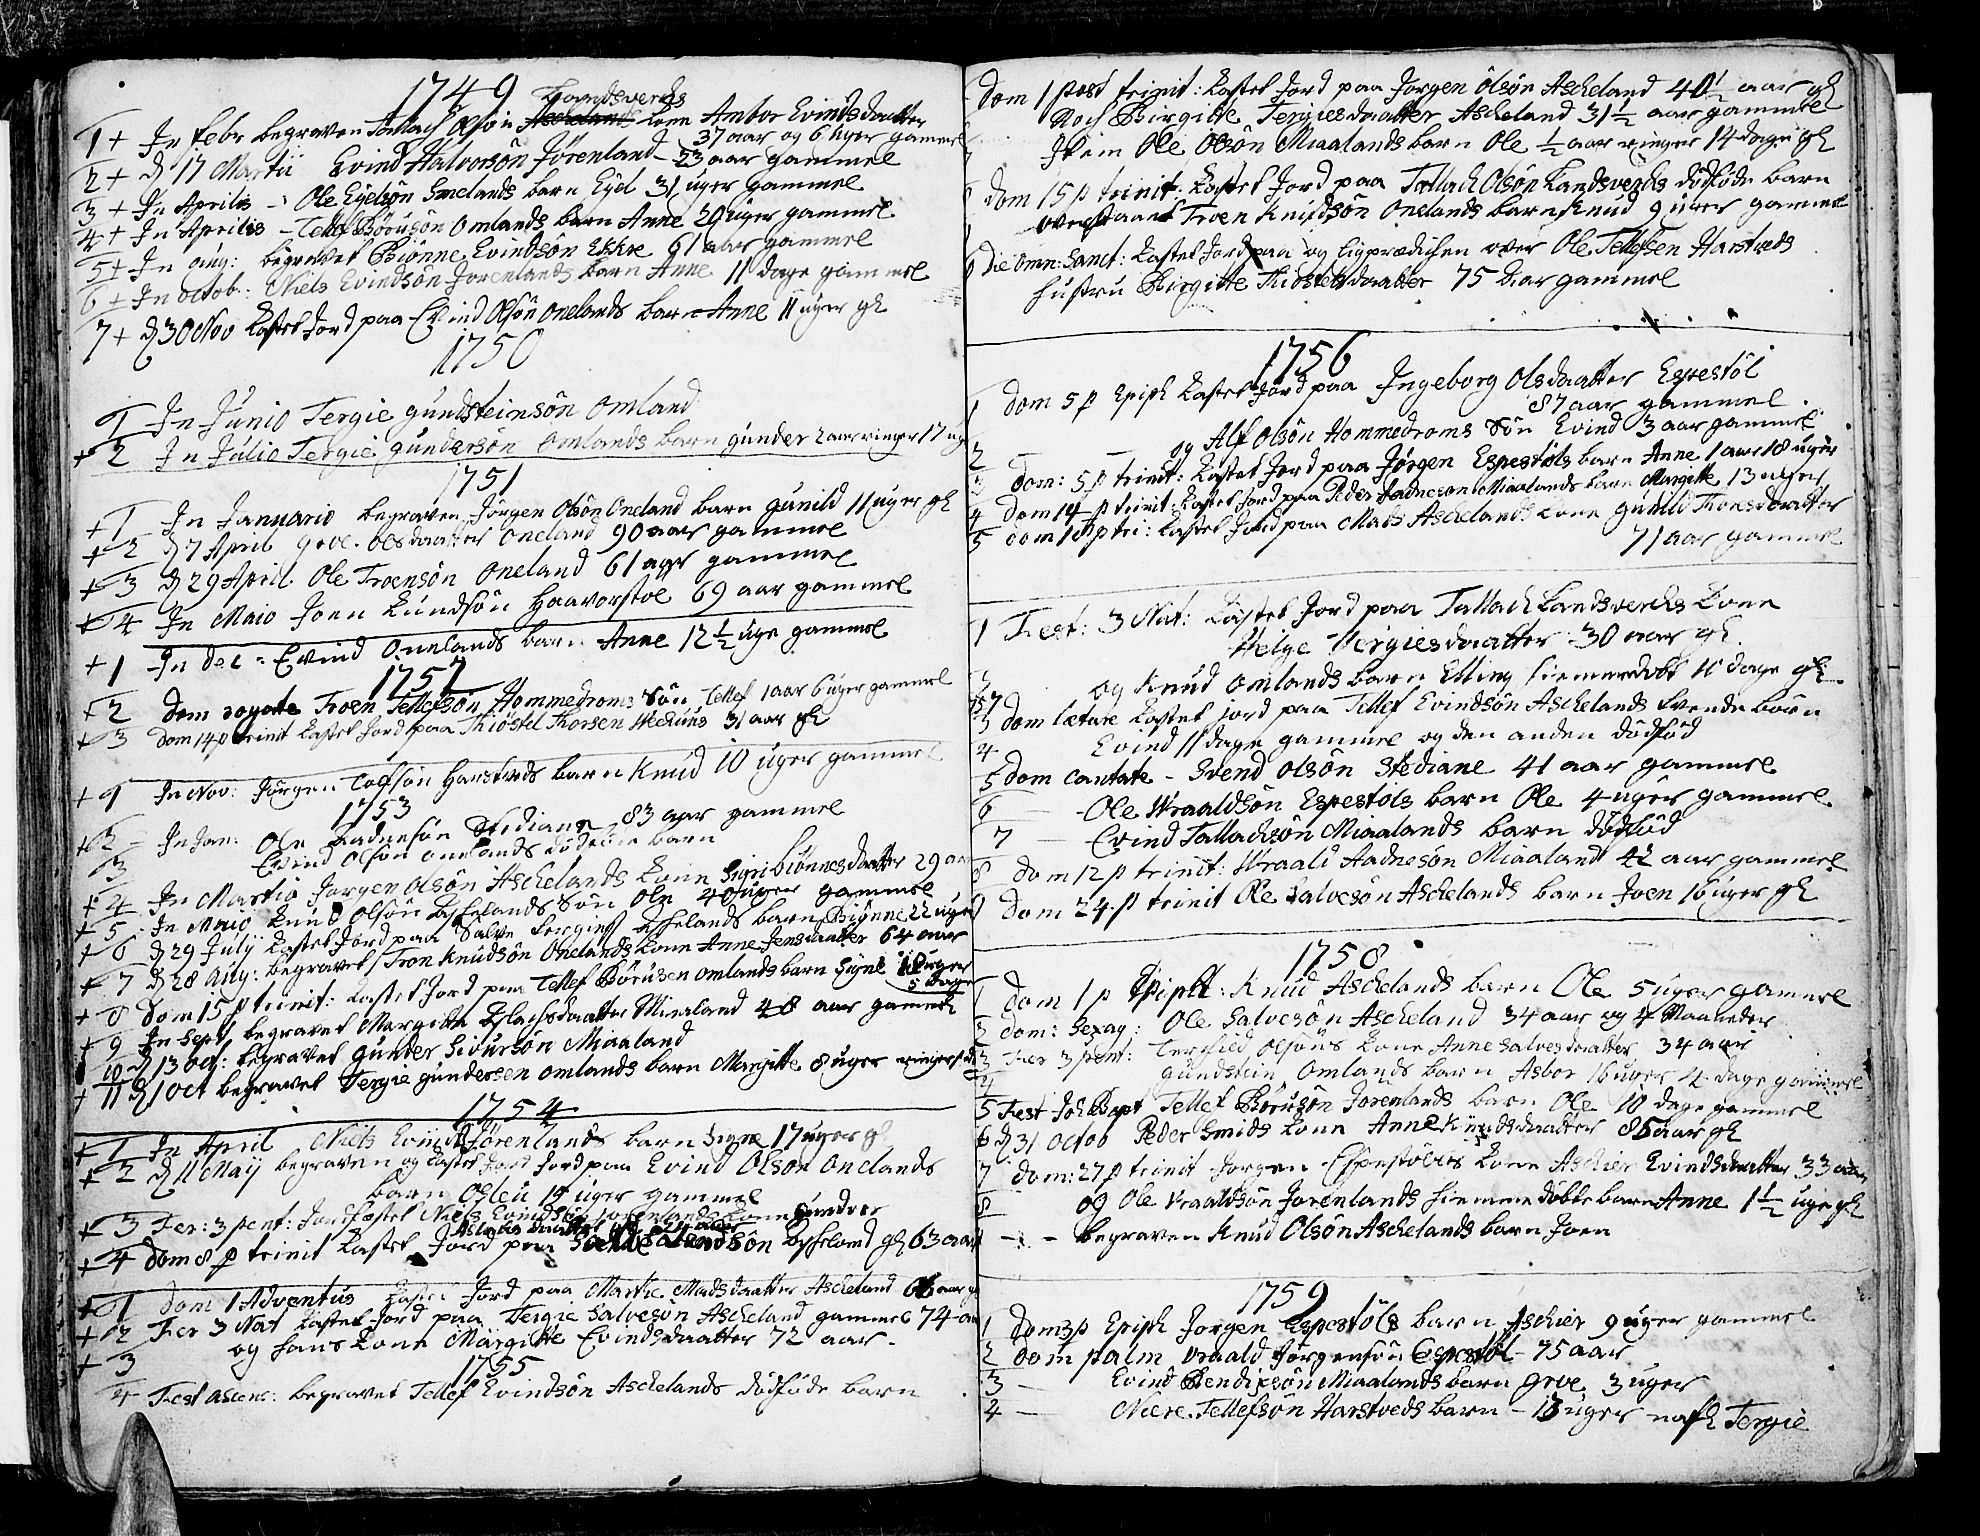 1749
Landsverchs
1 + In febr begraven Tallach Olsøn Ascheland Kone Anbor Evindsdaatter
37 aar og 6 uger gammel
2 + D 17 Martii Evind Halvorsøn Jørenland - 23 aar gammel
3 + In Aprilis - Ole Eyelsøn Smelands barn Eyel 31 uger gammel
4 + In Aprilis - Tellef Børusøn Omlands barn Anne 20 uger gammel
5 + In aug: begravet Biønne Evindsøn Eskre 61 aar gammel
6 + In octob: Niels Evindsøn Jorenlands barn Anne 11 dage gammel
7 + D 30 Nov Kastet Jord paa Evind Olsøn Onelands barn Anne 11 uger gl
1750
1 In Junio Tergie gundsteinsøn Omland
+ 2 In Julio Tergie gundersøn Omlands barn gunder 2 aar ringer 17 ug
1751
+ 1 In Januario begraven Jørgen Olsøn Oneland barn gunild 11 uger gl
+ 2 D 7 April Grove Olsdaatter Oneland 90 aar gammel
+ 3 D 29 April Ole Troensøn Oneland 61 aar gammel
+ 4 In Maio Joen Knudsøn Haavorstøl 69 aar gammel
+ 1 In Dec = Evind Onelands barn Anne 12 1/2 uge gammel
1752
+ 2 Dom rogate Troen Tellefsøn Hommedroms Søn Tellef 1 aar 6 uger gammel
+ 3 Dom 14 p trinit Kastet Jord paa Thiøstel Thorsen 31 aar gl
+ 1 In Nov: Jørgen Harstveds barn Knud 10 uger gammel
1753
+ 2 - In Jan: Ole Aadnesøn Stediane 83 aar gammel
3 Evind Olsøn Onelands dødføde barn
+ 4 In Martio Jørgen Olsøn Aschelands Kone Sigri Biønnesdaatter 29 aar
+ 5 In Maio Knud Olsøn Aschelands Søn Ole 40 uger gammel
+ 6 D 29 July Kastet Jord paa Salve Tergies Aschelands barn Biønne 22 uger
+ 7 D 28 Aug: begravet Tron Knudsøn Onelands Kone Anne Jensdaatter 64 aar
+ 8 Dom 15 p trinit: Kastet Jord paa Tellef Børusen Omlands barn Signe uger
5 dage
+ 9 In Sept begravet Margitte Aslachsdaatter Miaaland 48 aar gammel
10 D 13 oct: begravet gunder Siversøn Miaaland
+ 11 D 1 oct begravet Tergie gundersen Omlands barn Margitte 8 uger ringer
1754
+ 1 In April Niels Evinds Jørenlands barn Signe 17 uger gl
+ 2 D 11 Maij begraven og Kastet Jord Jord paa Evind Olson Onelands
barn Osleu 14 uger gammel
+ 3 Fer: 3 pent: Jordfæstet Niels Evindsøn Jorenlands Kone Gundvor
+ 4 Dom 8 p trinit Kastet Jord paa Ascheland gl 63 aar
+ 1 Dom 1 Adventus Kastet Jord paa Marthe Madsdaatter Ascheland 66 aar g
+ 2 Fer 3 Nat Kastet Jord paa Tergie Salvesøn Ascheland gammel 74 aar
+ 3 og hans Kone Margitte Evindsdaatter 72 aar -
1755
4 Fest ascens: begravet Tellef Evindsøn Aschelands dødføde barn
Dom 1 post trinit: Kastet Jord paa Jørgen Olsøn Ascheland 40 1/2 aar gl
Noch Birgitte Tergiesdaatter Ascheland 31 1/2 aar gammel
Item Ole Olsøn Miaalands barn Ole 1/2 aar ringer 14 dage gl
Dom 15 p trinit: Kastet Jord paa Tallach Olsøn Landsverchs dødføde barn
Troen Knudsøn Onelands barn Knud 9 uger gammel
Die Omn: Sanct: Kastet Jord paa og Ligprædichen over Ole Tellefsen Harstveds
Hustru Birgitte Thiøstelsdaatter 75 aar gammel
1756
1 Dom 5 p Epiph Kastet Jord paa Ingeborg Olsdaatter Espestøl
87 aar gammel
2 - og Alf Olsøn Hommedroms Søn Evind 3 aar gammel
3 Dom: 5 p trinit: Kastet Jord paa Jørgen Espestøls barn Anne 1 aar 18 uger
4 Dom 14 p trinit: Kastet Jord paa Peder Aadneson Miaalands barn Margitte 13 uger
5 Dom 18 p tri: Kastet Jord paa Mads Aschelands Kone gunild Thoresdaatter
71 aar gammel
1 Fest: 3 Nat: Kastet Jord paa Tallach Landsverchs Kone
Helge Tergiesdaatter 30 aar gl.
2 og Knud Omlands barn Elling hiemmedøbt 10 dage gl.
57
3 Dom lætare Kastet jord paa Tellef Evindsøn Aschelands tvende børn
4 Evind 11 dage gammel og den anden dødfød
5 Dom Cantate - Svend Olsøn Stediane 41 aar gammel
6 - Ole Wraaldsøn Espestøls barn Ole 4 uger gammel.
7 Evind Tallachsøn Miaalands barn dødfød
8 Dom 12 p trinit: Wraald Aadnesøn Miaaland 42 aar gammel
9 Dom 24 p trinit Ole Salvesøn Aschelands barn Joen 16 uger gl
1758
1 Dom 1 p Epiph: Knud Aschelands barn Ole 5 uger gammel
2 Dom: Sexag: Ole Salvesøn Ascheland 34 aar og 4 Maaneder
3 Fer 3 pent: Terchild Olsøns Kone Anne Salvesdaatter 34 aar
4 gundstein Omlands barn Asbor 16 uger 4 dage gammel
5 Fest Joh Bapt Tellef Børusøn Jorenlands barn Ole 10 dage gammel
6 D 31 Octob Peder Smids Kone Anne Knudsdaatter 85 aar gl
7 Dom: 27 p trinit Jørgen Espestøls Kone Aschier Evindsdaatter 33 aar
8 og Ole Wraaldsøn Jorenlands hiemmedøbte barn Anne 1 1/2 uge gl
- - begraven Knud Olsøn Aschelands barn Joen
1759
1 Dom 3 p Epiph Jorgen Espestøls barn Aschier 9 uger gammel
2 Dom palm Vraald Jørgensøn Espestøl - 75 aar
3 - Evind Bendixsøn Miaalands barn Grove 3 uger
4 - Niere Tellefsøn Harstveds barn - 13 uger nafl Tergie